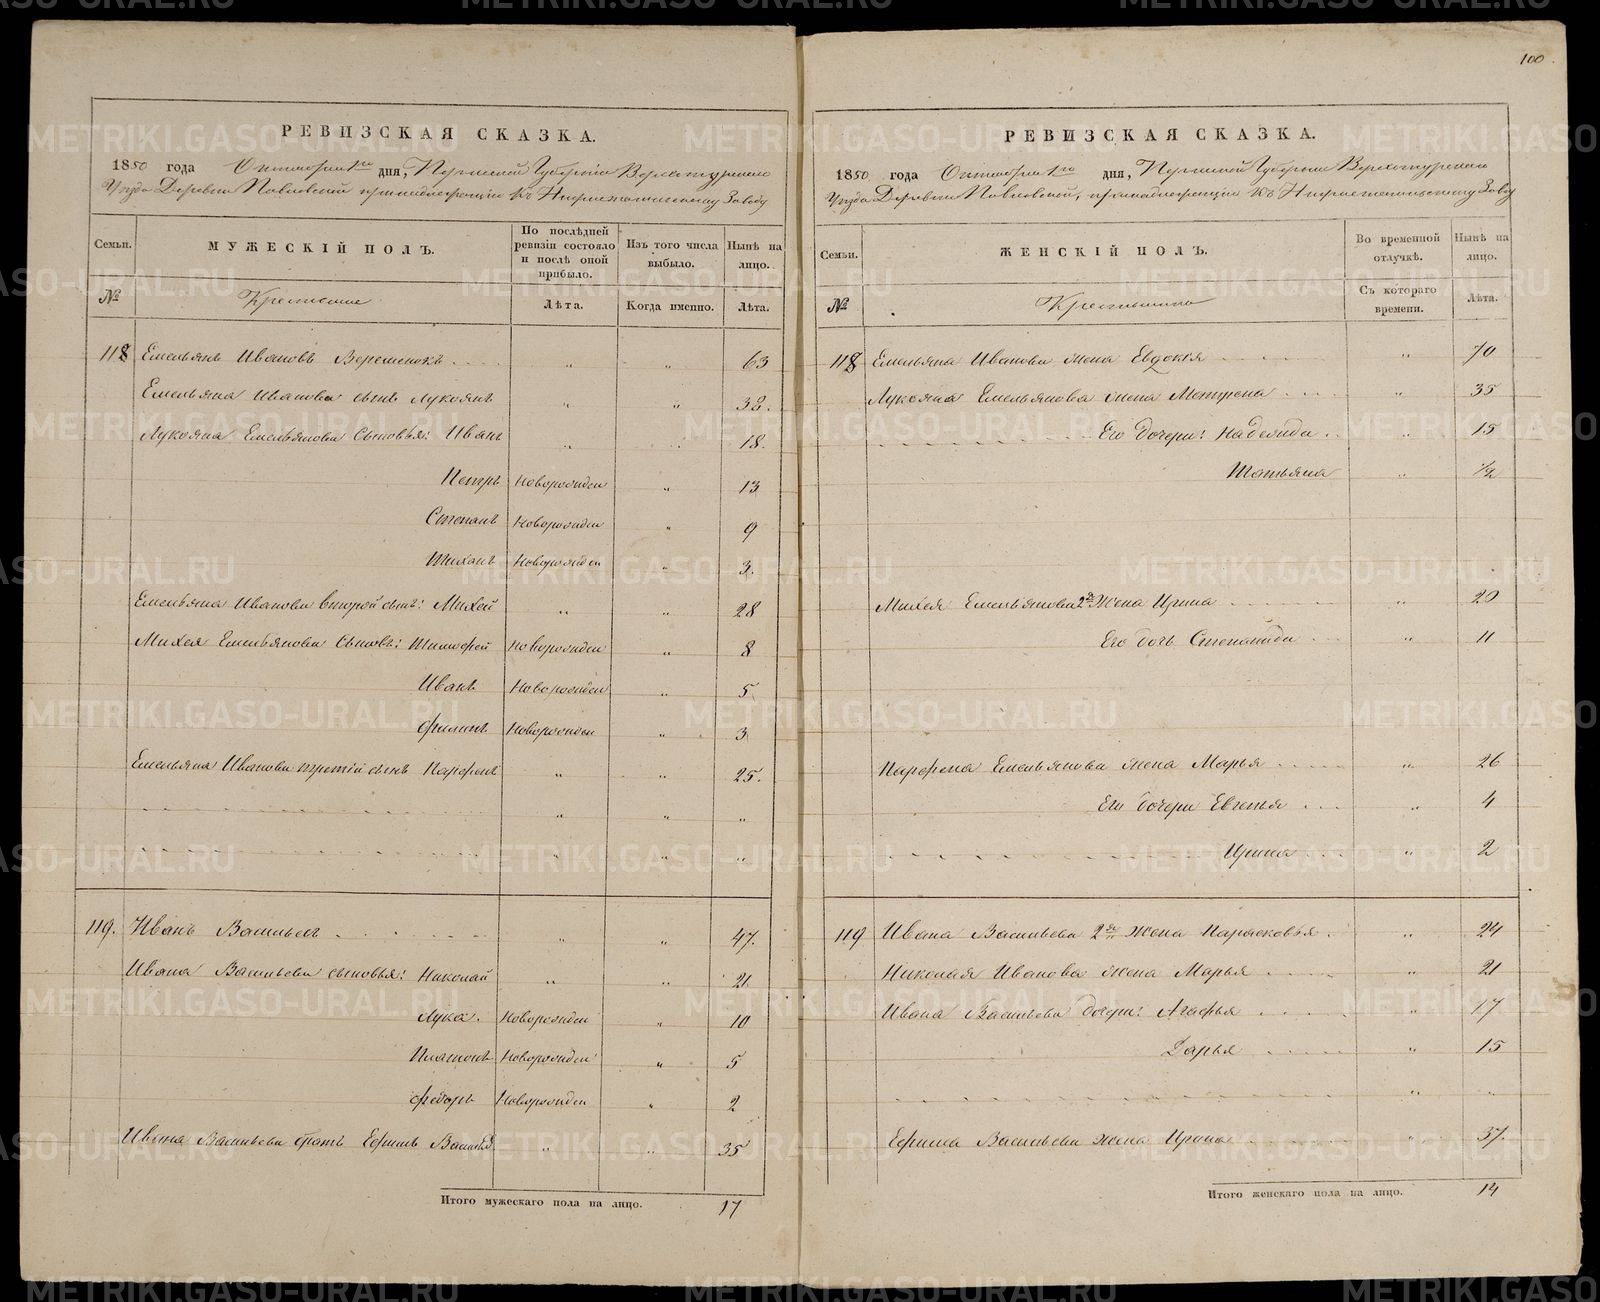 100
РЕВИЗСКАЯ СКАЗКА.
1850 года Октября 1го дня, Пермской Губернiи Верхотурскаго
Уезда Деревни Павловской принадлежащие къ Нижнетагильскому Заводу
Семьи.
МУЖЕСКІЙ ПОЛЪ.
По послѣдней ревизіи состояло и послѣ оной прибыло.
Изъ того числа выбыло.
Нынѣ на лицо.
№
Крестьяне
Лѣта.
Когда именно.
Лѣта.
118 Емельянъ Ивановъ Веременокъ " " 63
Емельяна Иванова сынъ Лукоянъ " " 38.
Лукояна Емельянова Сыновья: Иванъ " " 18.
Петръ Новорожден " 13
Степанъ Новорожден " 9
Тихонъ Новорожден " 3.
Емельяна Иванова второй сынъ: Михей " " 28
Михея Емельянова Сыновь: Тимофей Новорожден " 8
Иванъ Новорожден " 5
Филипъ Новорожден " 3
Емельяна Иванова третiй сынъ Парфенъ " " 25.
" " "
" " "
119. Иванъ Васильевъ " " 47.
Ивана Васильева сыновья: Николай " " 21.
Лука. Новорожден " 10
Платонъ Новорожден " 5
Федоръ Новорожден " 2
Ивана Васильева братъ Ефимъ Васильев " " 35
Итого мужескаго пола на лицо. 17
РЕВИЗСКАЯ СКАЗКА.
1850 года Октября 1го дня, Пермской Губернiи Верхотурскаго
Уезда Деревни Павловской, принадлежащие къ Нижнетагильскому Заводу
Семьи.
ЖЕНСКІЙ ПОЛЪ.
Во временной отлучкѣ.
Нынѣ на лицо.
№
Крестьянки
Съ котораго времени.
Лѣта.
118 Емельяна Иванова жена Евдокiя " 70
Лукояна Емельянова жена Матрена " 35
Его дочери: Надежида " 15
Татьяна " 1/2
Михея Емельянова 2я Жена Ирина " 29
Его дочь Степанида " 11
Парфена Емельянова жена Марья " 26
Его дочери Евгенья " 4
Ирина " 2
119 Ивана Васильева 2я жена Парасковья " 24
Николая Иванова жена Марья " 21
Ивана Васильева дочери: Агафья " 17
Дарья " 15
" "
Ефима Васильева жена Ирина " 37.
Итого женскаго пола на лицо. 14
METRIKI.GASO-URAL.RU